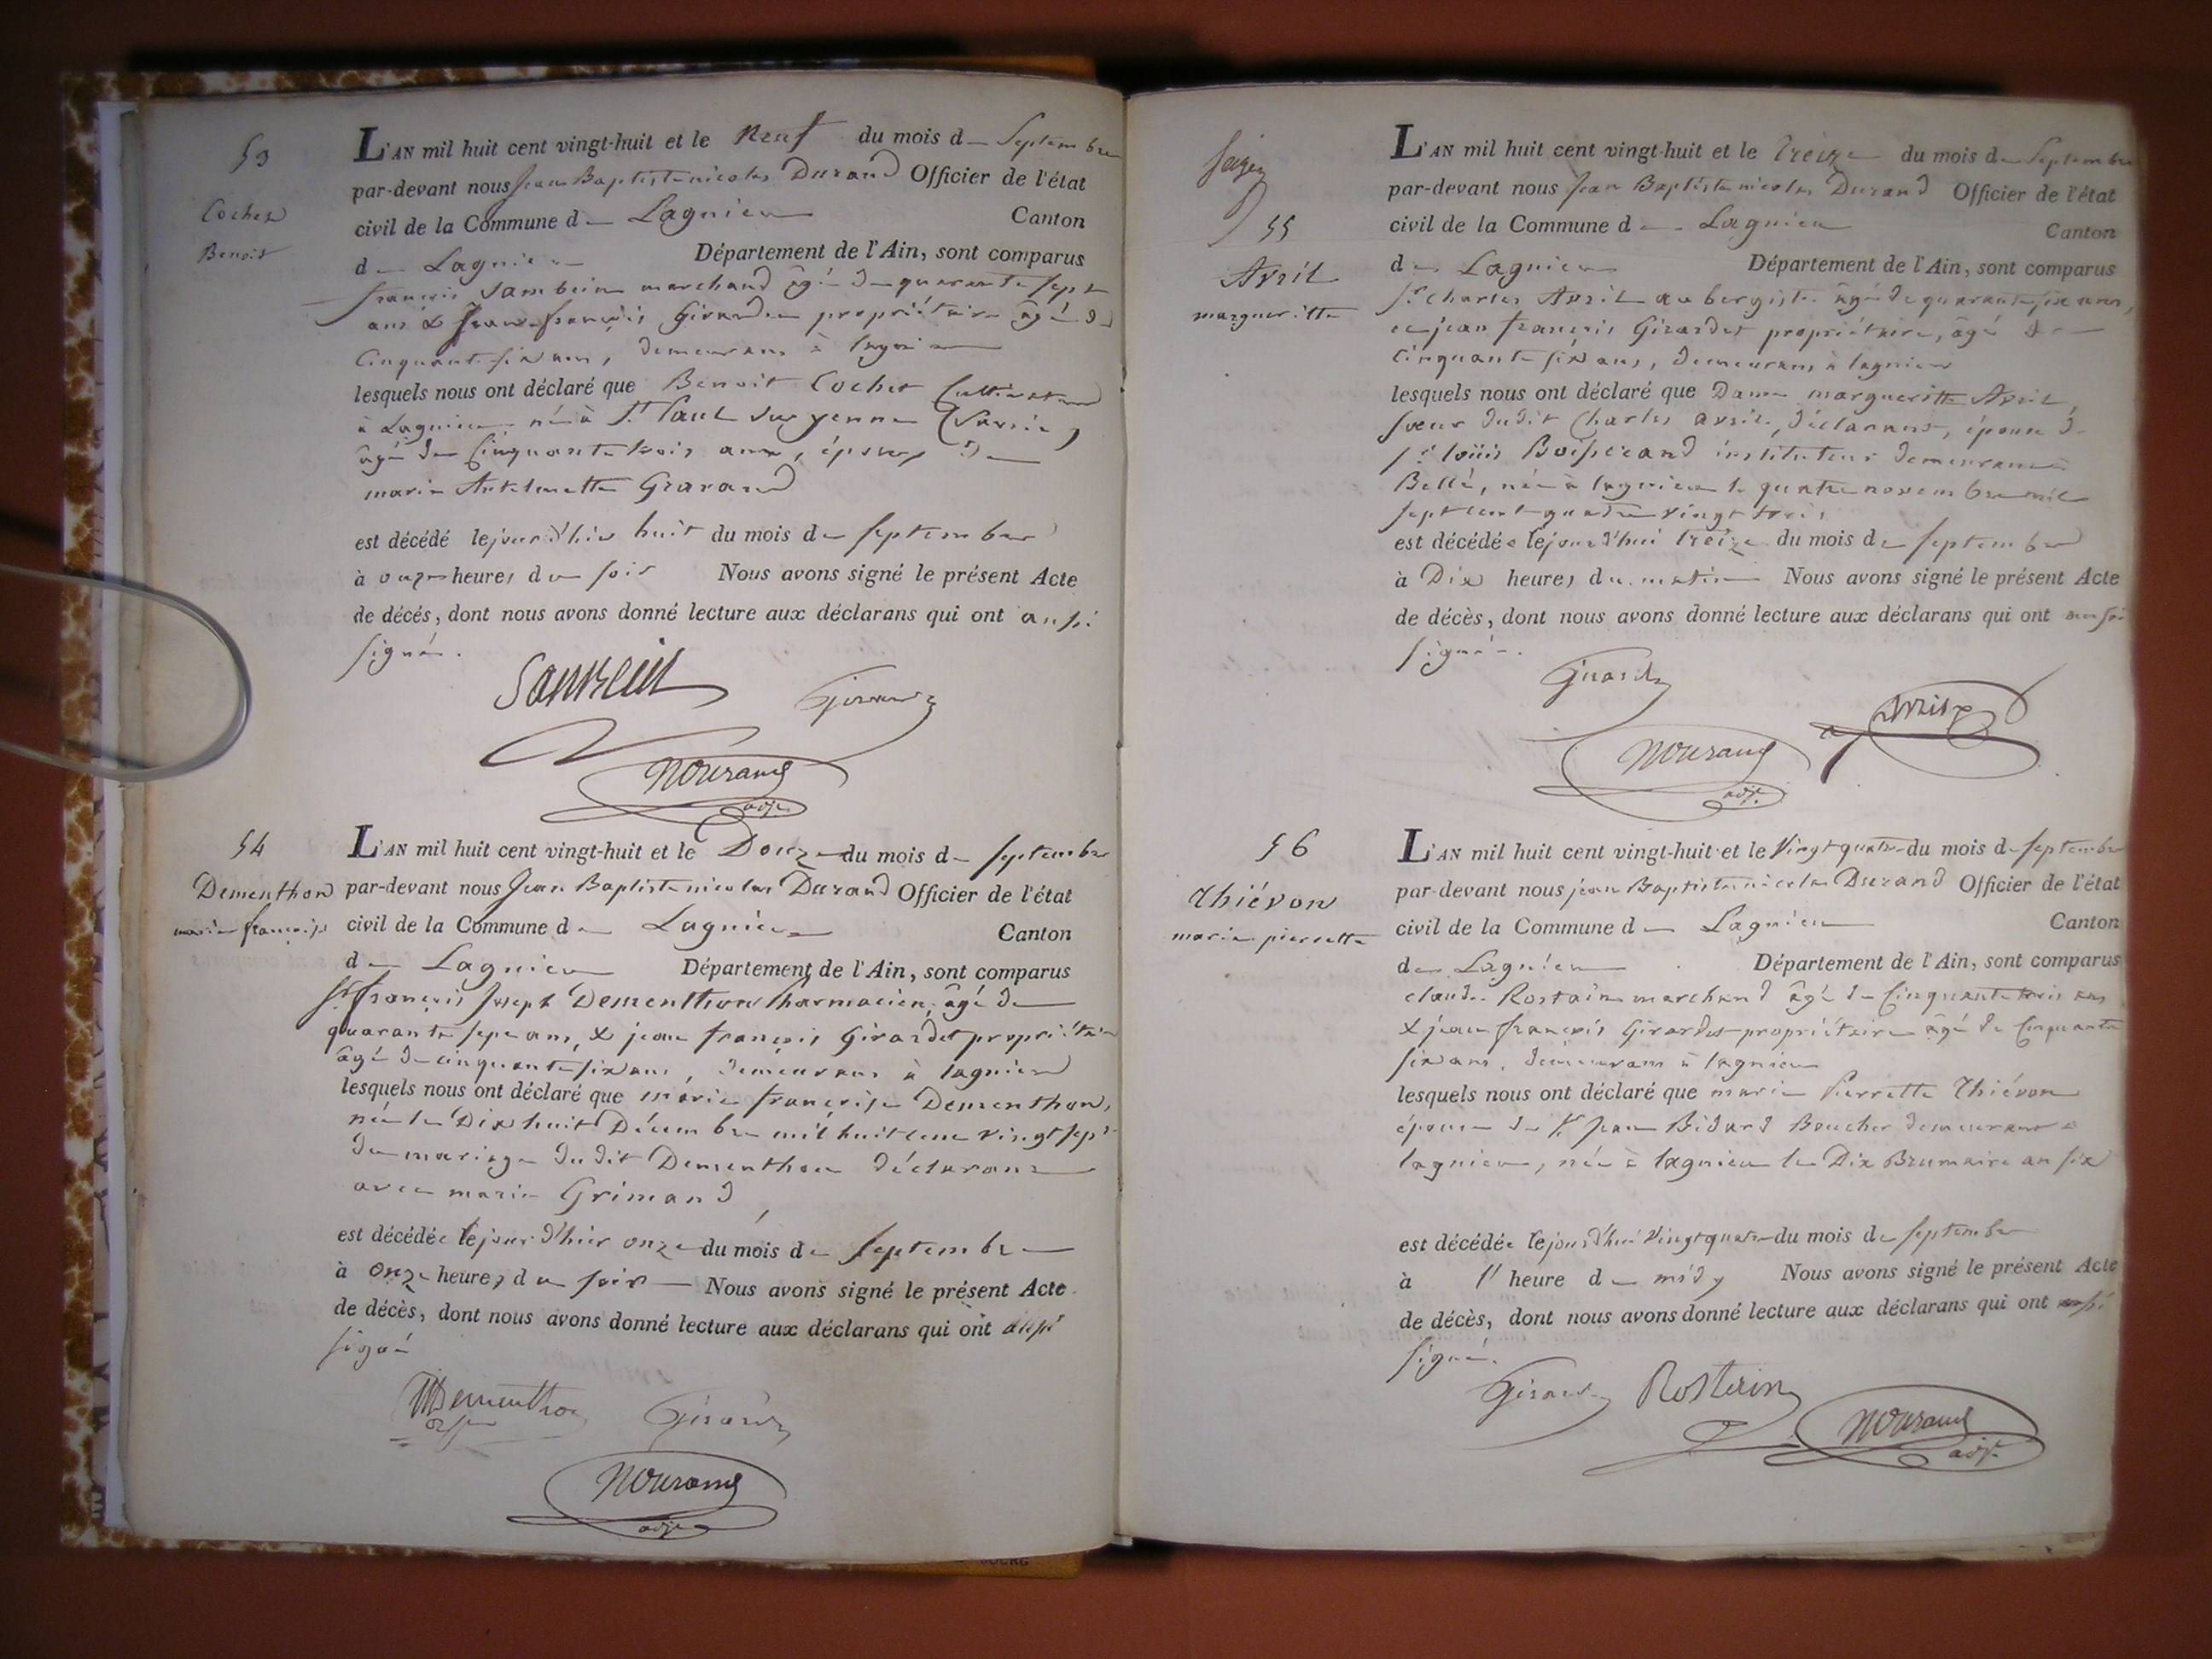 53
Cochet
Benoit
L'AN mil huit cent vingt-huit et le neuf du mois de Septembre
par-devant nous Jean Baptiste nicolas Durand Officier de l'état
civil de la Commune de Lagnieu Canton
de Lagnieu Département de l'Ain, sont comparus
françois Sambein marchand âgé de quarante sept
ans & Jean françois Girardet propriétaire âgé de
Cinquante six ans, demeurans à lagnieu
lesquels nous ont déclaré que Benoit Cochet Cultivateur
à Lagnieu né à St. Paul sur yenne (Savoie)
âgé de Cinquante trois ans, époux de
marie Anthelmette Gravand
est décédé le jour d'hier huit du mois de septembre
à onze heures du soir Nous avons signé le présent Acte
de décés, dont nous avons donné lecture aux déclarans qui ont aussi
signé.
Girardet
NDurand
adjt.
54
Dementhon
marie françoise
L'AN mil huit cent vingt-huit et le Douze du mois de septembre
par-devant nous Jean Baptiste nicolas Durand Officier de l'état
civil de la Commune de Lagnieu Canton
de Lagnieu Département de l'Ain, sont comparus
Sr. françois Joseph Dementhon Pharmacien, âgé de
quarante sept ans, & jean françois Girardet propriétaire
âgé de cinquante six ans, demeurans à lagnieu
lesquels nous ont déclaré que marie françoise Dementhon,
née le Dix huit Décembre mil huit cent vingt sept
du mariage du dit Dementhon déclarant
avec marie Grimand
est décédée le jour d'hier onze du mois de septembre
à onze heures du soir Nous avons signé le présent Acte
de décès, dont nous avons donné lecture aux déclarans qui ont aussi
signé
Dementhon
Girardet
NDurand
adjt
55
Avril
margueritte
L'AN mil huit cent vingt-huit et le treize du mois de Septembre
par-devant nous Jean Baptiste nicolas Durand Officier de l'état
civil de la Commune de Lagnieu Canton
de Lagnieu Département de l'Ain, sont comparus
Sr. Charles Avril aubergiste âgé de quarante six ans,
et jean françois Girardet propriétaire, âgé de
cinquante six ans, demeurans à lagnieu
lesquels nous ont déclaré que Dame margueritte Avril,
sœur dudit Charles avril, déclarant, épouse de
Sr. loüis Boisserand instituteur demeurant à
Bellé, née à lagnieu le quatre novembre mil
sept cent quatre vingt trois
est décédée le jour d'hui treize du mois de septembre
à Dix heures du matin Nous avons signé le présent Acte
de décès, dont nous avons donné lecture aux déclarans qui ont aussi
signé.
Girardet
Avril
NDurand
adjt.
56
Thiévon
marie pierrette
L'AN mil huit cent vingt-huit et le Vingt quatre du mois de septembre
par-devant nous jean Baptiste nicolas Durand Officier de l'état
civil de la Commune de Lagnieu Canton
de Lagnieu Département de l'Ain, sont comparus
claude Rostain marchand âgé de Cinquante trois ans
& jean françois Girardet propriétaire âgé de Cinquante
six ans, demeurans à lagnieu
lesquels nous ont déclaré que marie Pierrette Thiévon
épouse de Sr. Jean Bidard Boucher demeurant à
lagnieu, née à lagnieu le Dix Brumaire an six
est décédée le jour d'hui vingt quatre du mois de septembre
à 1 heure de midy Nous avons signé le présent Acte
de décès, dont nous avons donné lecture aux déclarans qui ont aussi
signé.
Girardet
Rostein
NDurand
adjt.